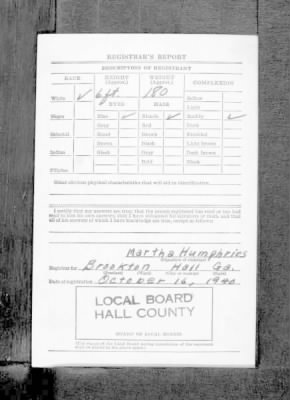 REGISTRAR'S REPORT
DESCRIPTION OF REGISTRANT
RACE HEIGHT (Approx.) WEIGHT (Approx.) COMPLEXION
White ✓ 6 ft. 180 Sallow
EYES HAIR Light
Negro Blue ✓ Blonde ✓ Ruddy ✓
Gray Red Dark
Oriental Hazel Brown Freckled
Brown Black Light brown
Indian Black Gray Dark brown
Bald Black
Filipino
Other obvious physical characteristics that will aid in identification
I certify that my answers are true; that the person registered has read or has had
read to him his own answers; that I have witnessed his signature or mark and that
all of his answers of which I have knowledge are true, except as follows:
Martha Humphries
(Signature of registrar)
Registrar for Brookton Hall Ga.
(Precinct) (Ward) (City or county) (State)
Date of registration October 16, 1940
LOCAL BOARD
HALL COUNTY
(STAMP OF LOCAL BOARD)